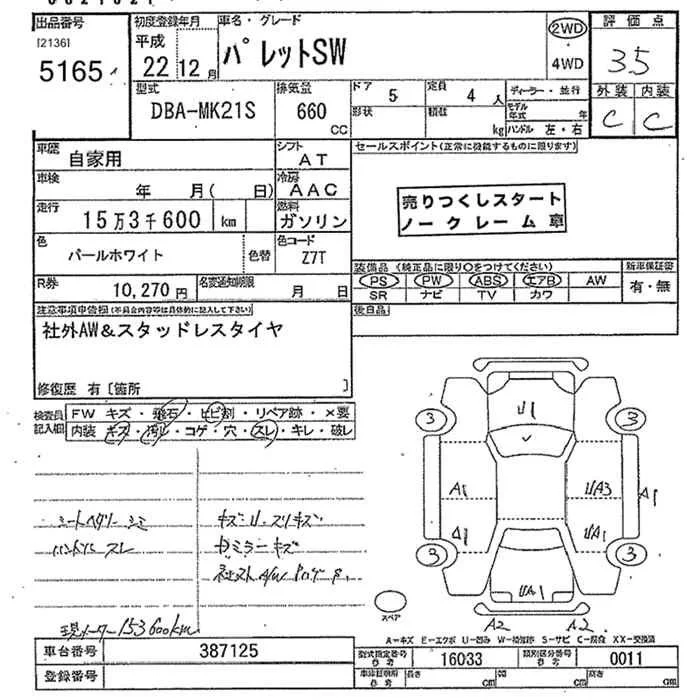 出品番号
[2136]
5165
初度登録年月
平成
22 12 月
車名・グレード
パレットSW
2WD
4WD
評価点
3.5
外装 内装
C C
型式
DBA-MK21S
排気量
660
CC
ドア 5
定員 4 人
形状
積載 kg
ディーラー・並行
モデル年式 年
ハンドル 左・右
車歴
自家用
シフト
AT
車検
年 月( 日)
冷房
AAC
走行
15万3千600 km
燃料
ガソリン
色
パールホワイト
色替
色コード
Z7T
R券
10,270 円
名変通知期限
月 日
セールスポイント(正常に機能するものに限ります)
売りつくしスタート
ノークレーム車
装備品 (純正品に限り〇をつけてください)
PS PW ABS エアB AW
SR ナビ TV カワ
新車保証書
有・無
後日品
注意事項申告欄(不具合内容等は具体的に記入して下さい)
社外AW&スタッドレスタイヤ
修復歴 有〔箇所 〕
検査員記入欄
FW キズ・飛石・ヒビ割・リペア跡・×要
内装 キズ・汚れ・コゲ・穴・スレ・キレ・破レ
シートヘタリ シミ
ハンドル スレ
キズ・U・スリキズ
ミラーキズ
現メーター153600km
3 3
U1
A1 UA3 A1
A1 UA1
3 3
UA1
スペア
A2 A2
A-キズ E-エクボ U-凹み W-補修跡 S-サビ C-腐食 XX-交換済
車台番号
387125
登録番号
型式指定番号
参考
16033
類別区分番号
参考
0011
車庫証明用
参考
長さ cm
幅 cm
高さ cm